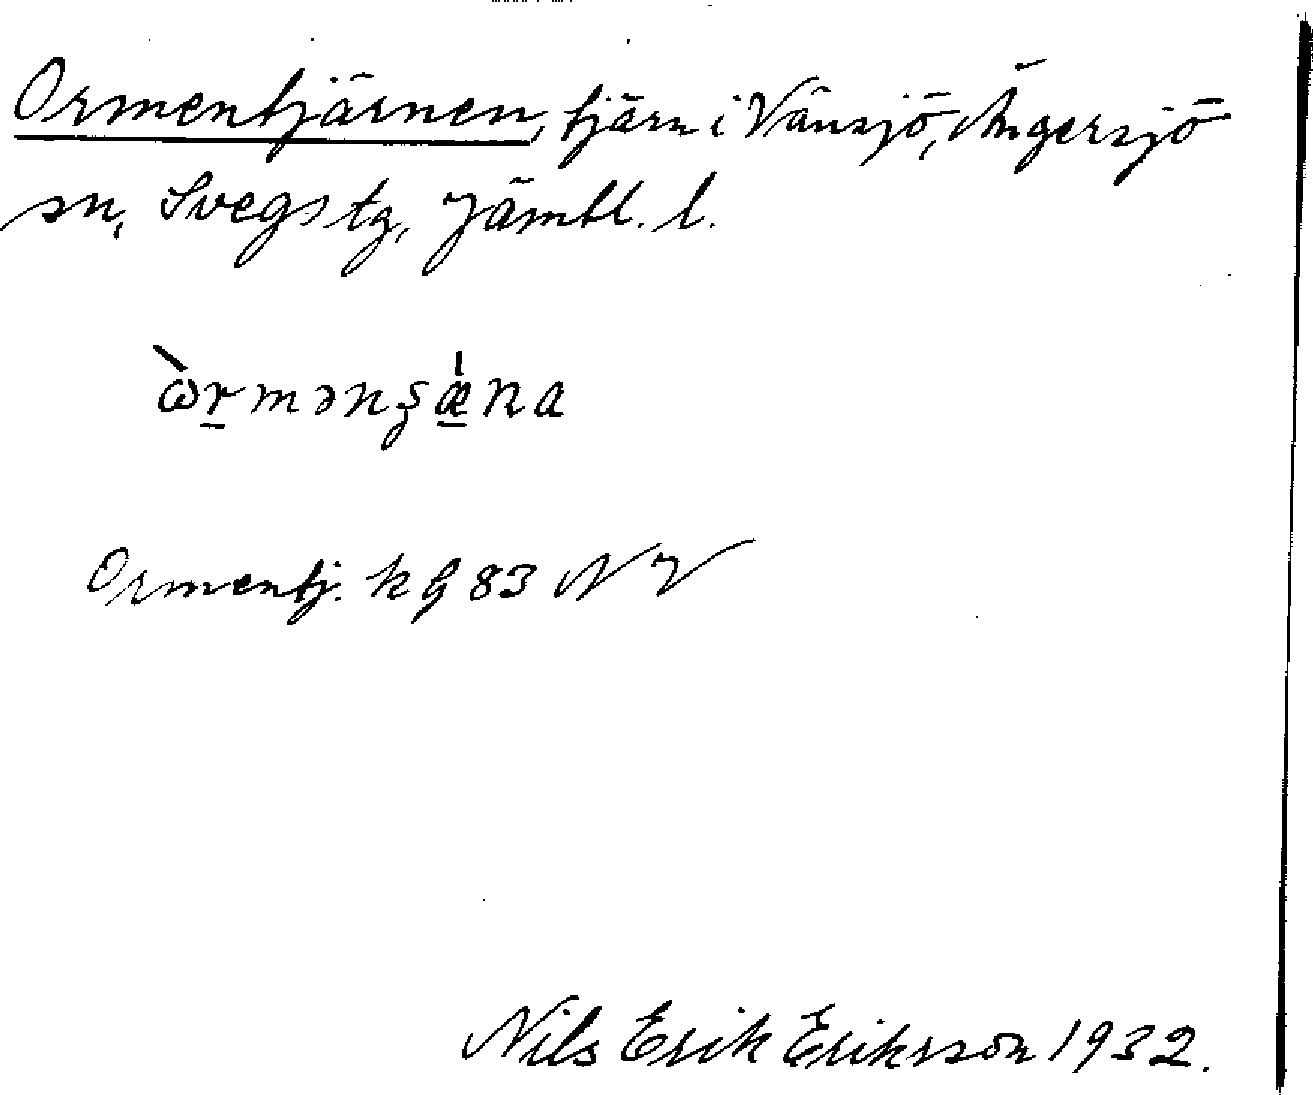 Ormentjärnen, tjärn i Vänsjö, Ängersjö
sn, Svegs tg, Jämtl. l.
ὼr̠mənʂǽ̠na
Ormentj. kg 83 NV
Nils Erik Eriksson 1932.